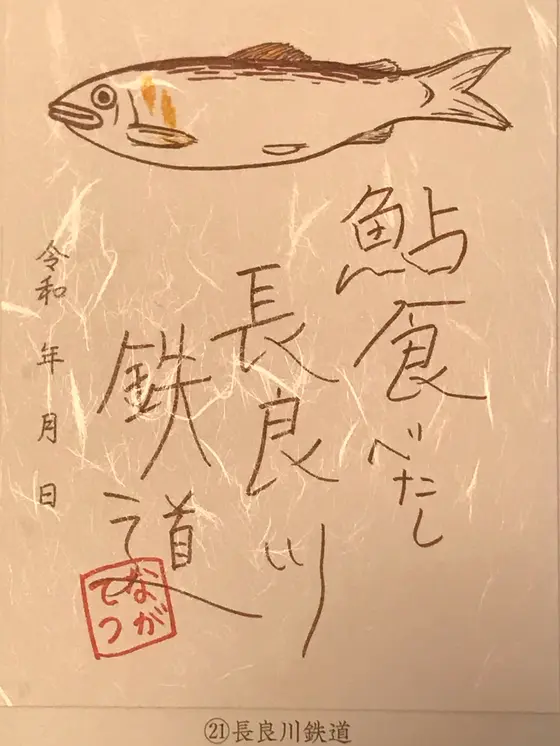 鮎食べたし
長良川
鉄道
令和 年 月 日
なが
てつ
㉑長良川鉄道